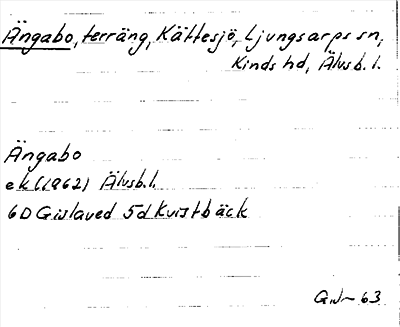 Ängabo, terräng, Kättesjö, Ljungsarps sn,
Kinds hd, Älvsb. l.
Ängabo
ek (1962) Älvsb. l.
6D Gislaved 5d Kvistbäck
G.N- 63